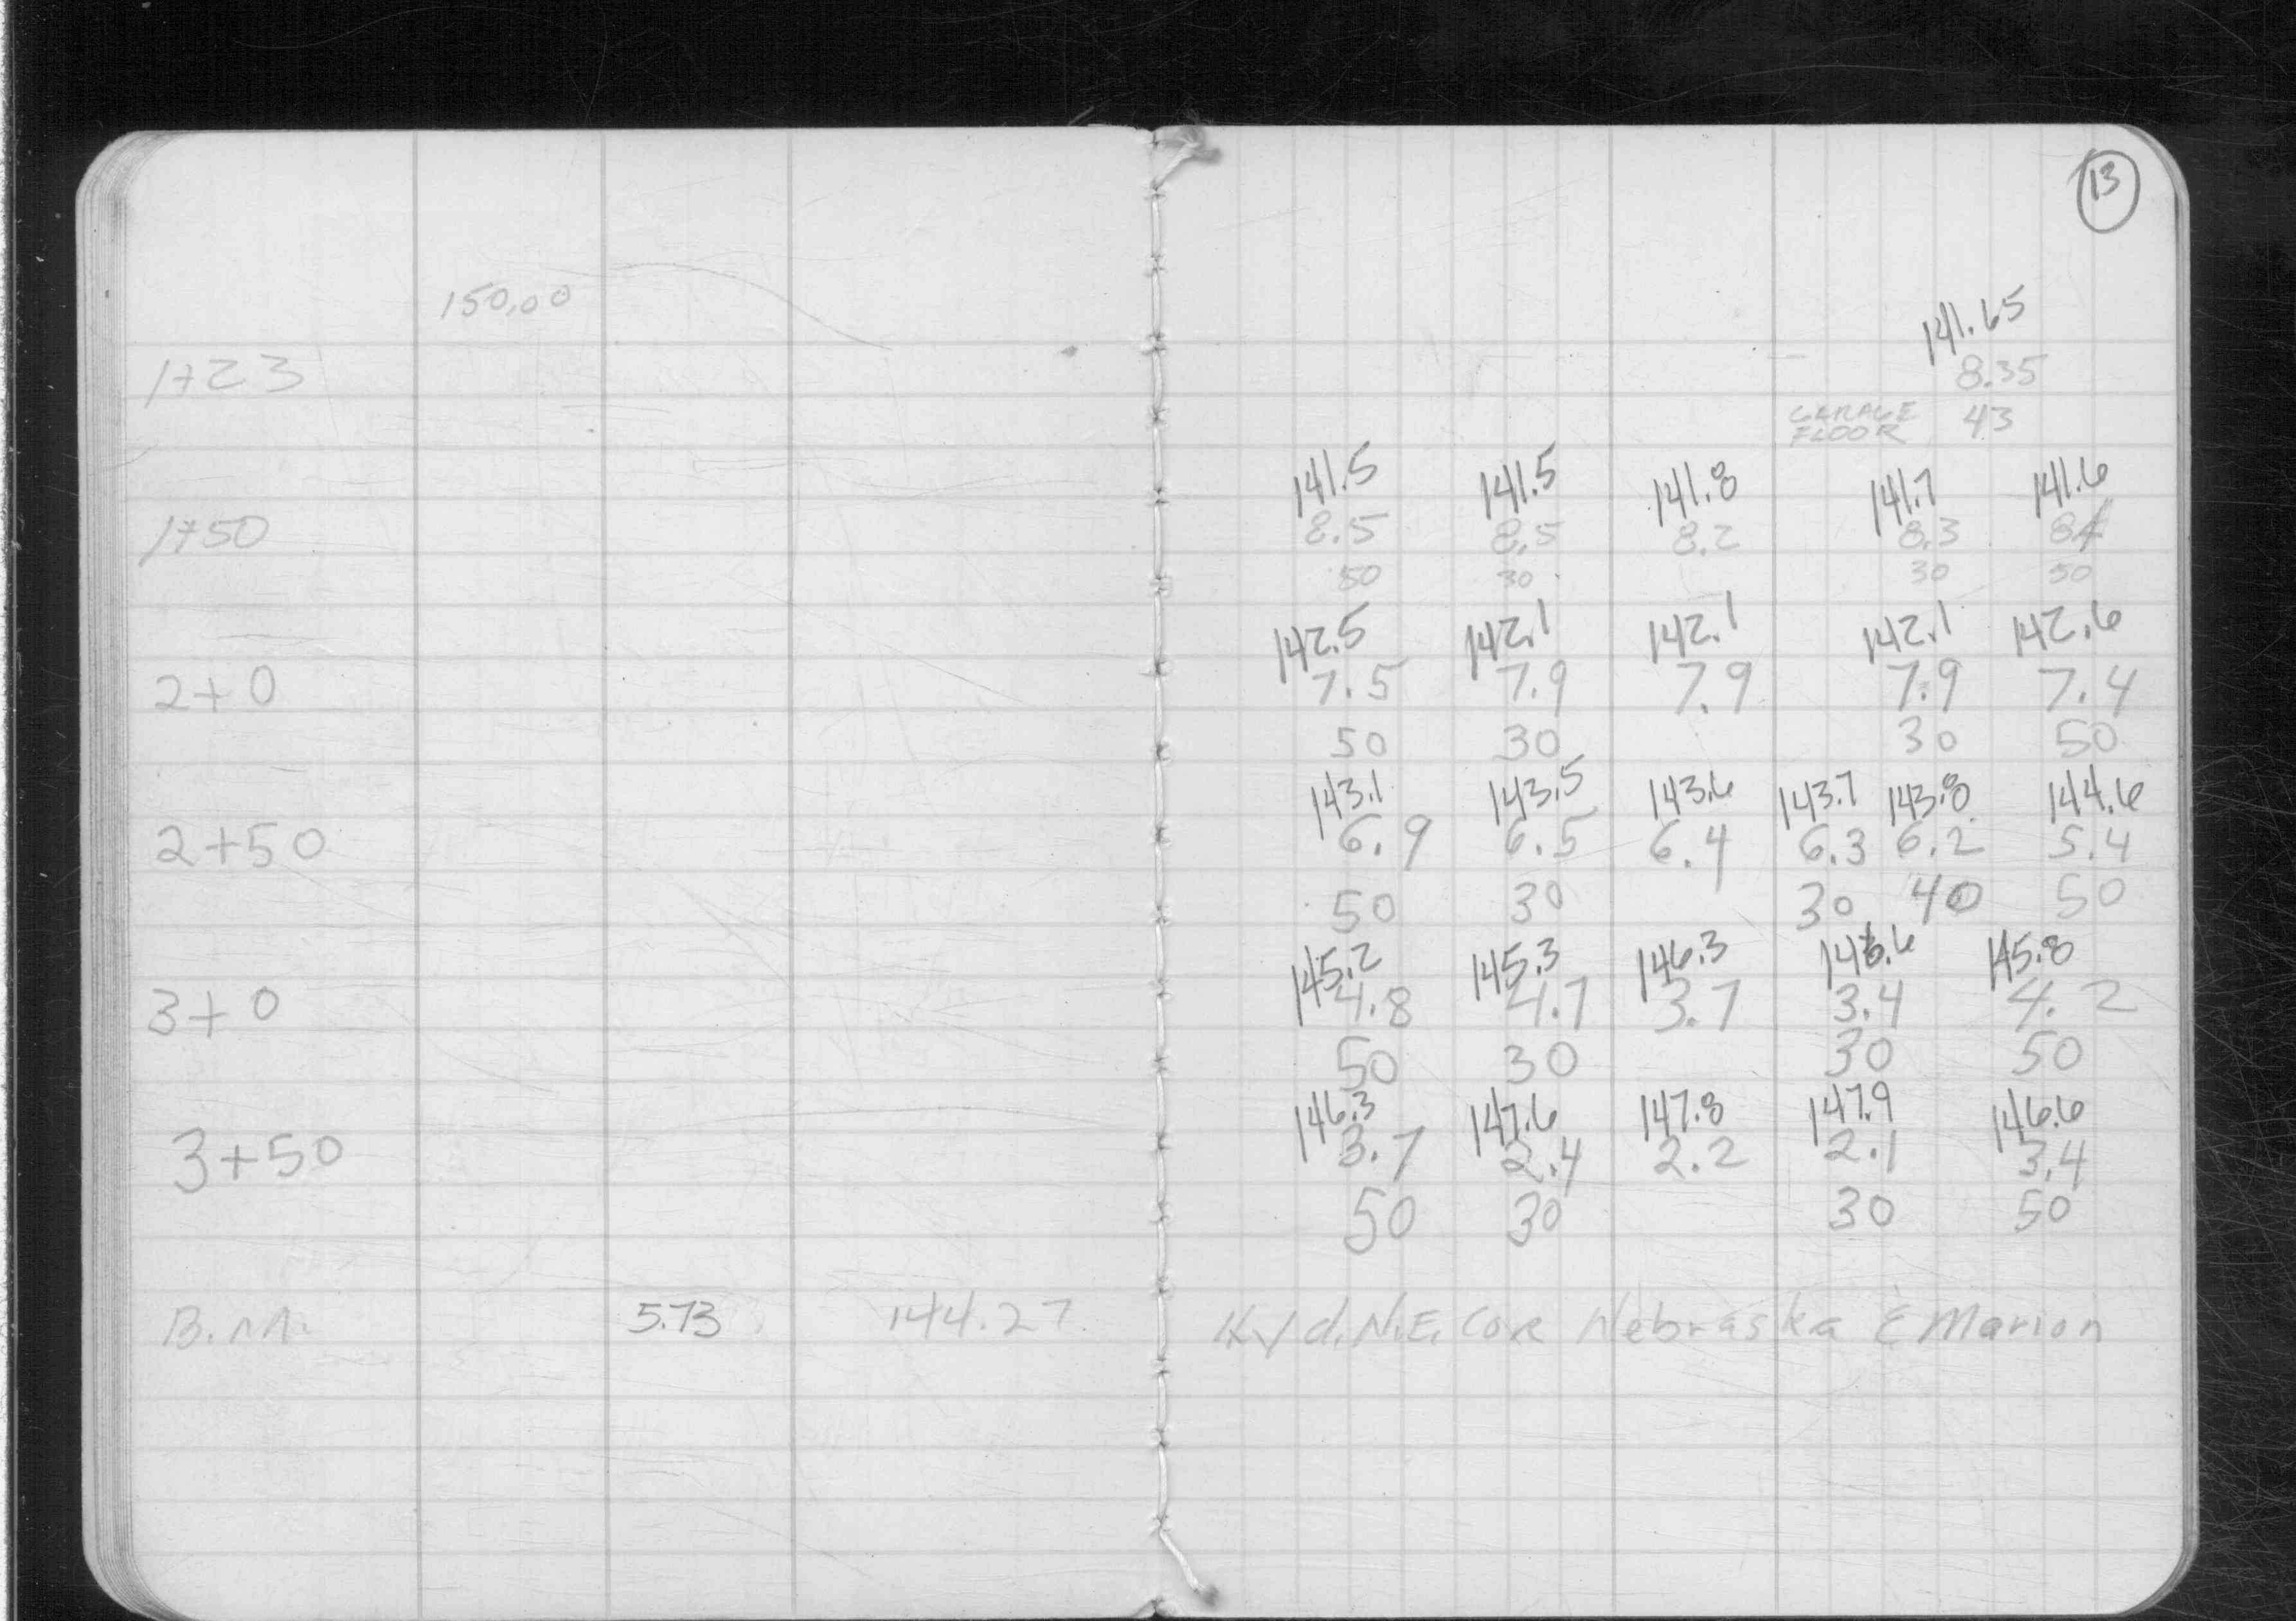 13
150.00
141.65
1+23 8.35
GARAGE FLOOR 43
141.5 141.5 141.8 141.7 141.6
1+50 8.5 8.5 8.2 8.3 8.4
50 30 30 50
142.5 142.1 142.1 142.1 142.6
2+0 7.5 7.9 7.9 7.9 7.4
50 30 30 50
143.1 143.5 143.6 143.7 143.8 144.6
2+50 6.9 6.5 6.4 6.3 6.2 5.4
50 30 30 40 50
145.2 145.3 146.3 146.6 145.8
3+0 4.8 4.7 3.7 3.4 4.2
50 30 30 50
146.3 147.6 147.8 147.9 146.6
3+50 3.7 2.4 2.2 2.1 3.4
50 30 30 50
B.M. 5.73 144.27 Hyd. N.E. Cor Nebraska & Marion